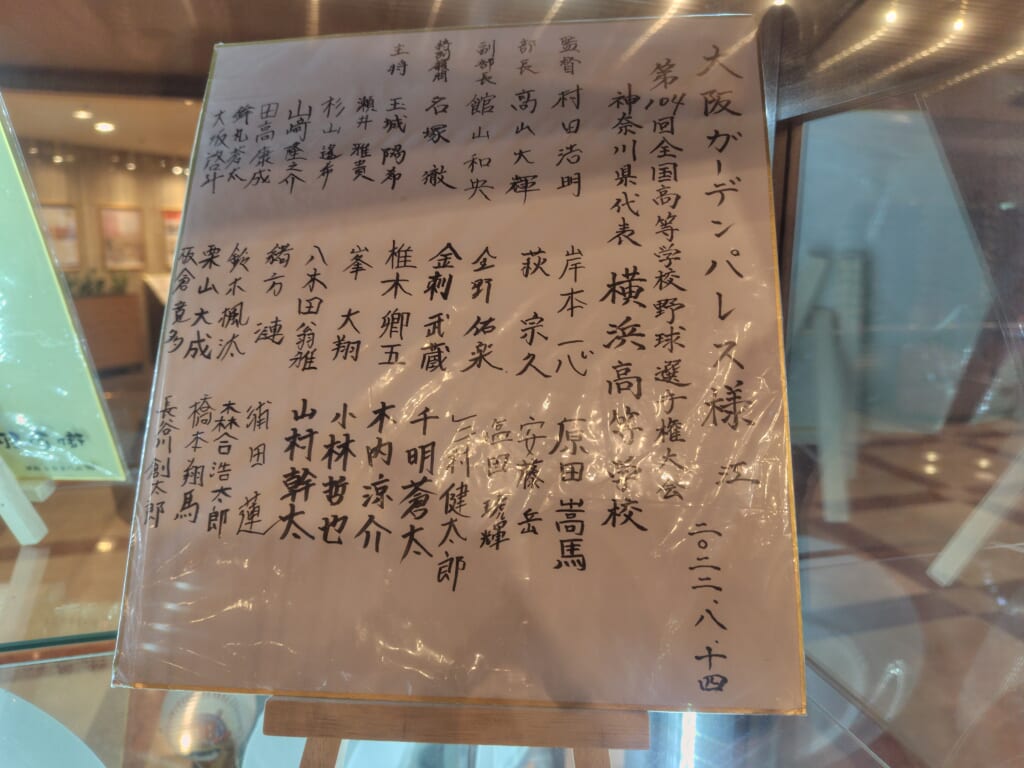 大阪ガーデンパレス様江
二〇二二、八、十四
第104回全国高等学校野球選手権大会
神奈川県代表 横浜高等学校
監督 村田浩明
部長 高山大輝
副部長 館山和央
名塚徹
主将 玉城陽希
瀬井雅貴
杉山遙希
山﨑隆之介
田高康成
鉾丸蒼太
大坂啓斗
岸本一心
萩宗久
金刺武蔵
椎木卿五
峯大翔
八木田翁雅
緒方漣
鈴木楓汰
栗山大成
板倉寛多
原田嵩馬
安藤岳
塩田琥輝
三科健太郎
千明蒼太
木内涼介
小林哲也
山村幹太
浦田蓮
森合浩太郎
橋本翔馬
長谷川創太郎